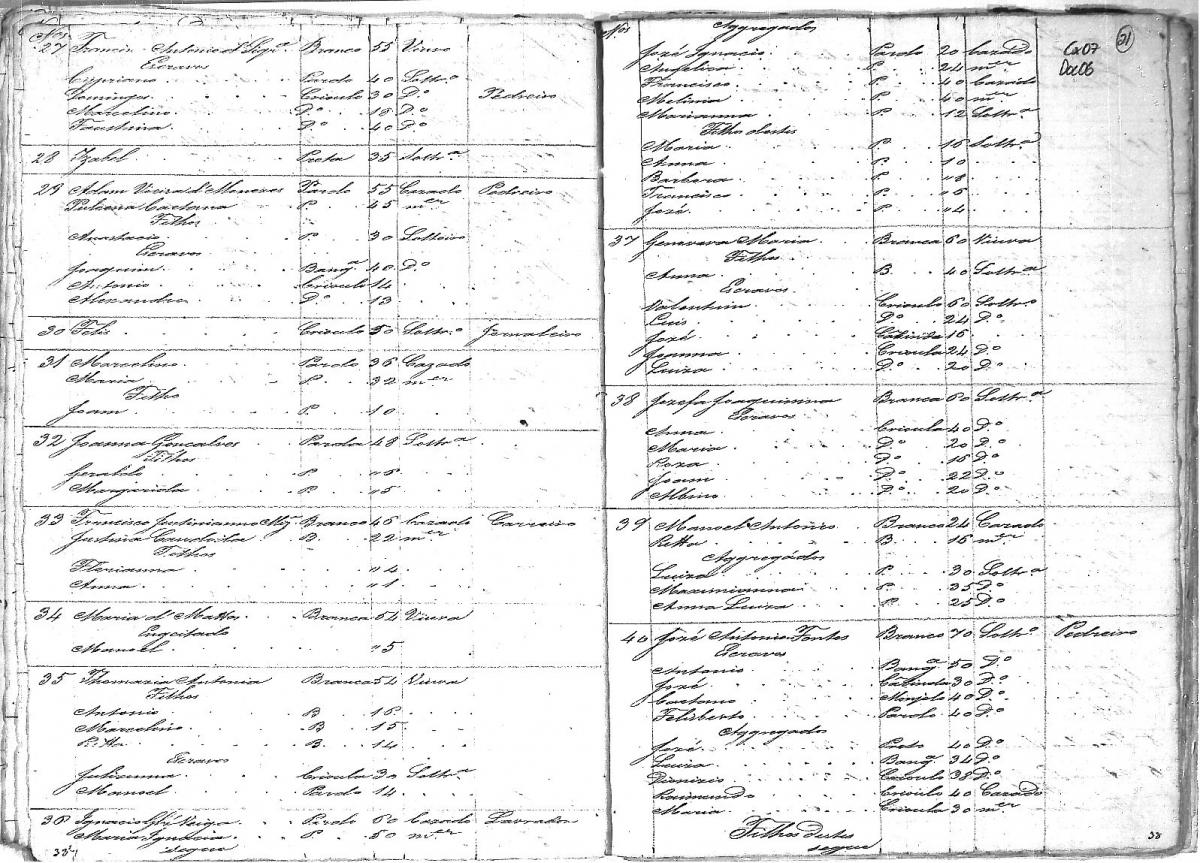 Nos
27 Francis. Antonio d' Branco 55 Viuvo
Escravos
Cypriano Pardo 40 Soltr.o
Domingos Crioulo 30 D.o Pedreiro
Marcelino D.o 18 D.o
Faustina D.o 40 D.o
28 Izabel Preta 35 Soltr.a
29 Adam Vieira d'Menezes Pardo 55 Cazado Pedreiro
Juliana Caetana P. 45 m.er
Filhos
Anastacio P. 30 Solteiro
Escravos
Joaquim Bang.a 40 D.o
Antonio Crioulo 14
Alexandre D.o 13
30 Felis Crioulo 50 Soltr.o Jornaleiro
31 Marcelino Pardo 36 Cazado
Maria P. 32 m.er
Filho
Joam P. 10
32 Joanna Goncalves Parda 48 Soltr.a
Filhos
Geraldo P. "6
Margarida P. "5
33 Francisco Justinianno Branco 46 Cazado Carreiro
Justina Candida B. 22 m.er
Filhos
Florianna "4
Anna "1
34 Maria d' Mattos Branca 54 Viuva
Engeitado
Manoel "5
35 Thomazia Antonia Branca 54 Viuva
Filhos
Antonio B 16
Marcelino B 15
Ritta B. 14
Escravos
Julianna Crioula 30 Soltr.a
Manoel Pardo 14
36 Ignacio Veiga Pardo 60 Cazado Lavrador
Maria Ignacia P. 50 m.er
segue
38
Nos Aggregados
Jozé Ignacio Pardo 20 Cazado
Angelica P. 24 m.er
Francisco P. 40 Cazado
Melinia P. 40 m.er
Marianna P. 12 Soltr.a
Filhos destes
Maria P. 16 Soltr.a
Anna P. 10
Barbara P. "8
Francisco P. "6
Jozé P. "4
37 Genovava Maria Branca 60 Viuva
Filhos
Anna B. 40 Soltr.a
Escravos
Valentim Crioulo 60 Soltr.o
Luis D.o 24 D.o
Jozé Cabinda 16
Joanna Crioula 24 D.o
Luiza D.o 20 D.o
38 Jozefa Joaquinna Branca 60 Soltr.a
Escravos
Anna Crioula 40 D.o
Maria D.o 20 D.o
Roza D.o 16 D.o
Joam D.o 22 D.o
Albino D.o 20 D.o
39 Manoel Antonio Branco 24 Cazado
Ritta B. 16 m.er
Aggregados
Luiza P. 30 Soltr.a
Maximianna P. 35 D.o
Anna Luiza P. 25 D.o
40 Jozé Antonio Fontes Branco 70 Soltr.o Pedreiro
Escravos
Antonio Bang.a 50 D.o
Jozé Cabinda 30 D.o
Caetano Monjolo 40 D.o
Feliberto Pardo 40 D.o
Aggregados
Jozé Preto 40 D.o
Luiza Bang.a 34 D.o
Dionizio Crioulo 38 D.o
Raimundo Crioulo 40 Cazado
Maria Crioula 30 m.er
Filhos destes
segue
Cx07
Doc06
21
38